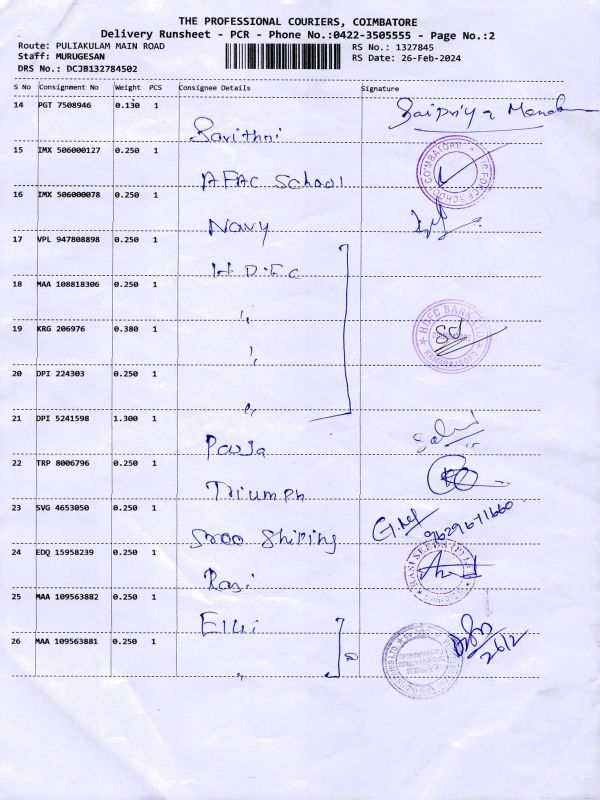 THE PROFESSIONAL COURIERS, COIMBATORE
Delivery Runsheet - PCR - Phone No.:0422-3505555 - Page No.:2
Route: PULIAKULAM MAIN ROAD RS No.: 1327845
Staff: MURUGESAN RS Date: 26-Feb-2024
DRS No.: DCJB132784502
S No Consignment No Weight PCS Consignee Details Signature
14 PGT 7508946 0.130 1
Saipriya
Savithri
15 IMX 506000127 0.250 1
AFAC School
16 IMX 506000078 0.250 1
Navy
17 VPL 947808898 0.250 1
H D F C
18 MAA 108818306 0.250 1
"
19 KRG 206976 0.380 1
HDFC BANK
"
20 DPI 224303 0.250 1
"
21 DPI 5241598 1.300 1
Pooja
22 TRP 8006796 0.250 1
Triumph
23 SVG 4653050 0.250 1
9629671660
Sroo Shiping
24 EDQ 15958239 0.250 1
RASI SEEDS (P) LTD
Rasi
25 MAA 109563882 0.250 1
Elgi
26 MAA 109563881 0.250 1
26/2
"